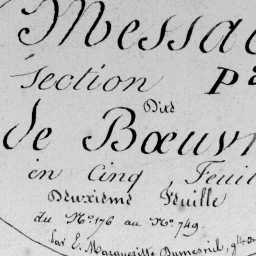 Messa
Section Pa
Dite
de Bœuv
en Cinq Feuil
Deuxième Feuille
du N° 176 au N° 749.
Par E. Marguerille Dumesnil,